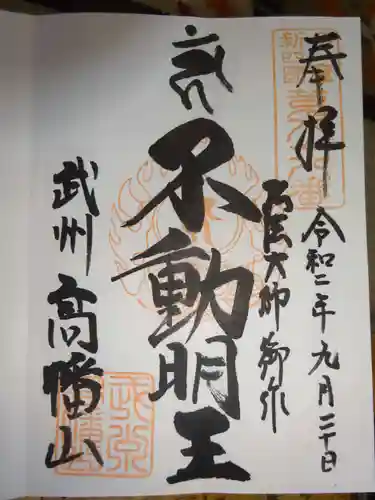 奉拝
令和二年九月二十日
弘法大師御作
不動明王
武州
高幡山